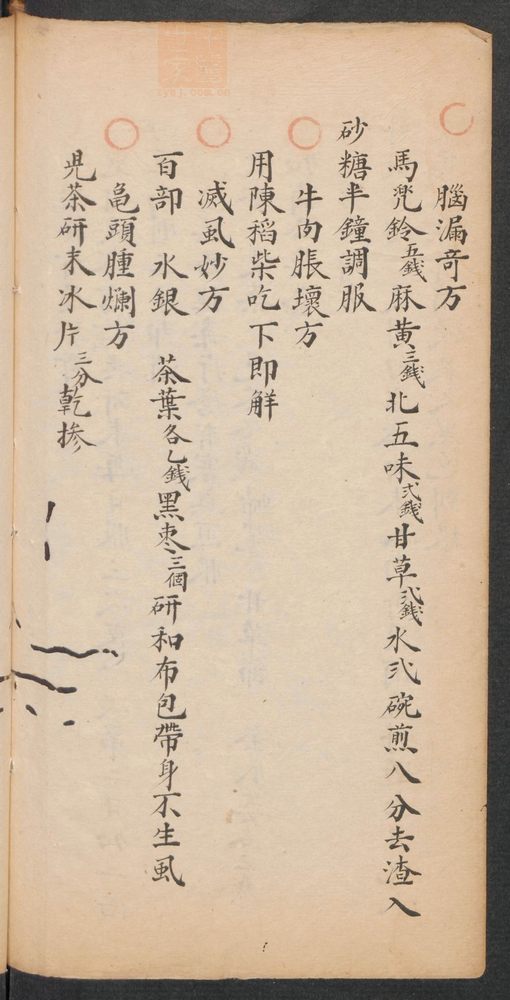 腦漏奇方
馬兜鈴五錢麻黄三錢北五味弍錢甘草弍錢水弍碗煎八分去渣入
砂糖半鐘調服
牛肉脹壞方
用陳稻柴吃下即解
滅風妙方
百部 水銀 茶葉各乙錢黑枣三個研和布包帶身不生風
龟頭腫爛方
児茶研末冰片三分乾摻